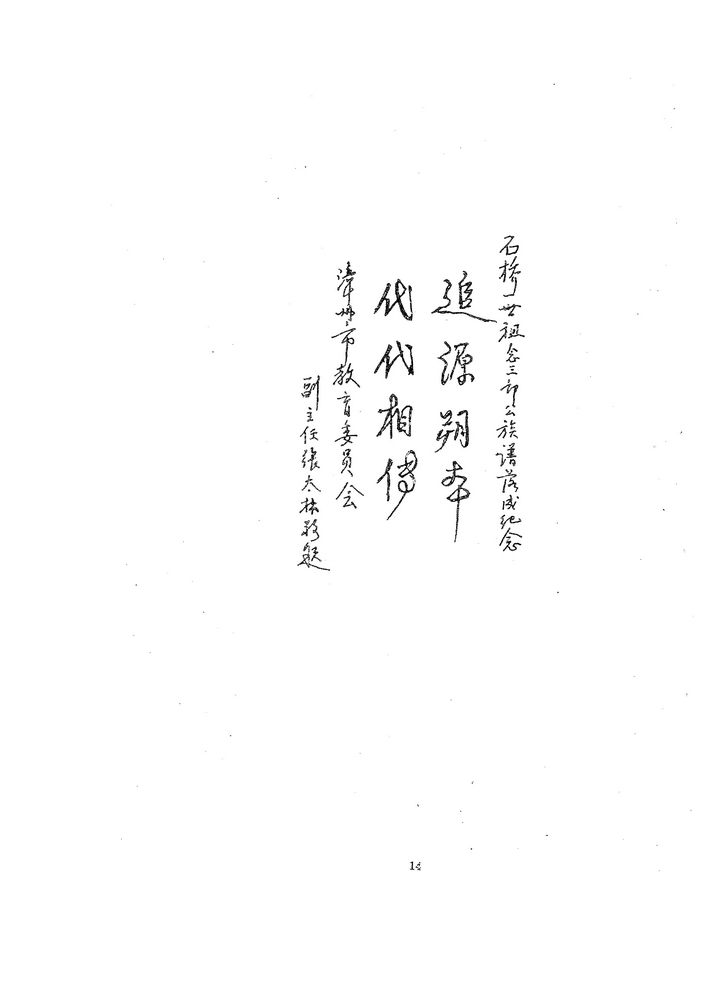 石桥一世祖念三郎公族谱落成纪念
追源朔本
代代相傳
漳州市教育委员会
副主任張大林敬題
14